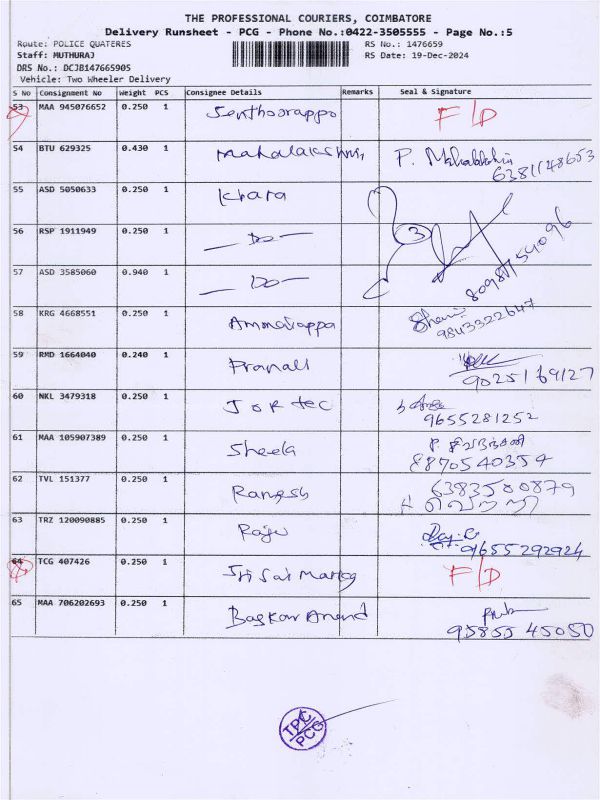 THE PROFESSIONAL COURIERS, COIMBATORE
Delivery Runsheet - PCG - Phone No.:0422-3505555 - Page No.:5
Route: POLICE QUATERES RS No.: 1476659
Staff: MUTHURAJ RS Date: 19-Dec-2024
DRS No.: DCJB147665905
Vehicle: Two Wheeler Delivery
S No Consignment No Weight PCS Consignee Details Remarks Seal & Signature
53 MAA 945076652 0.250 1 Senthoorappo F/D
54 BTU 629325 0.430 1 Mahalakshmi P. Mahalakshmi
6381148653
55 ASD 5050633 0.250 1 Khara
56 RSP 1911949 0.250 1 — Do — 3
57 ASD 3585060 0.940 1 — Do — 8098754096
58 KRG 4668551 0.250 1 Ammaiappa
9843322647
59 RMD 1664040 0.240 1 Pranali
9025169127
60 NKL 3479318 0.250 1 Jok tec
9655281252
61 MAA 105907389 0.250 1 Sheela
8870540354
62 TVL 151377 0.250 1 Rangesh 6383580879
63 TRZ 120090885 0.250 1 Raju
9655292924
64 TCG 407426 0.250 1 Sri Sai F/D
65 MAA 706202693 0.250 1 Baskar Anand
95855 45050
TPC
PCG